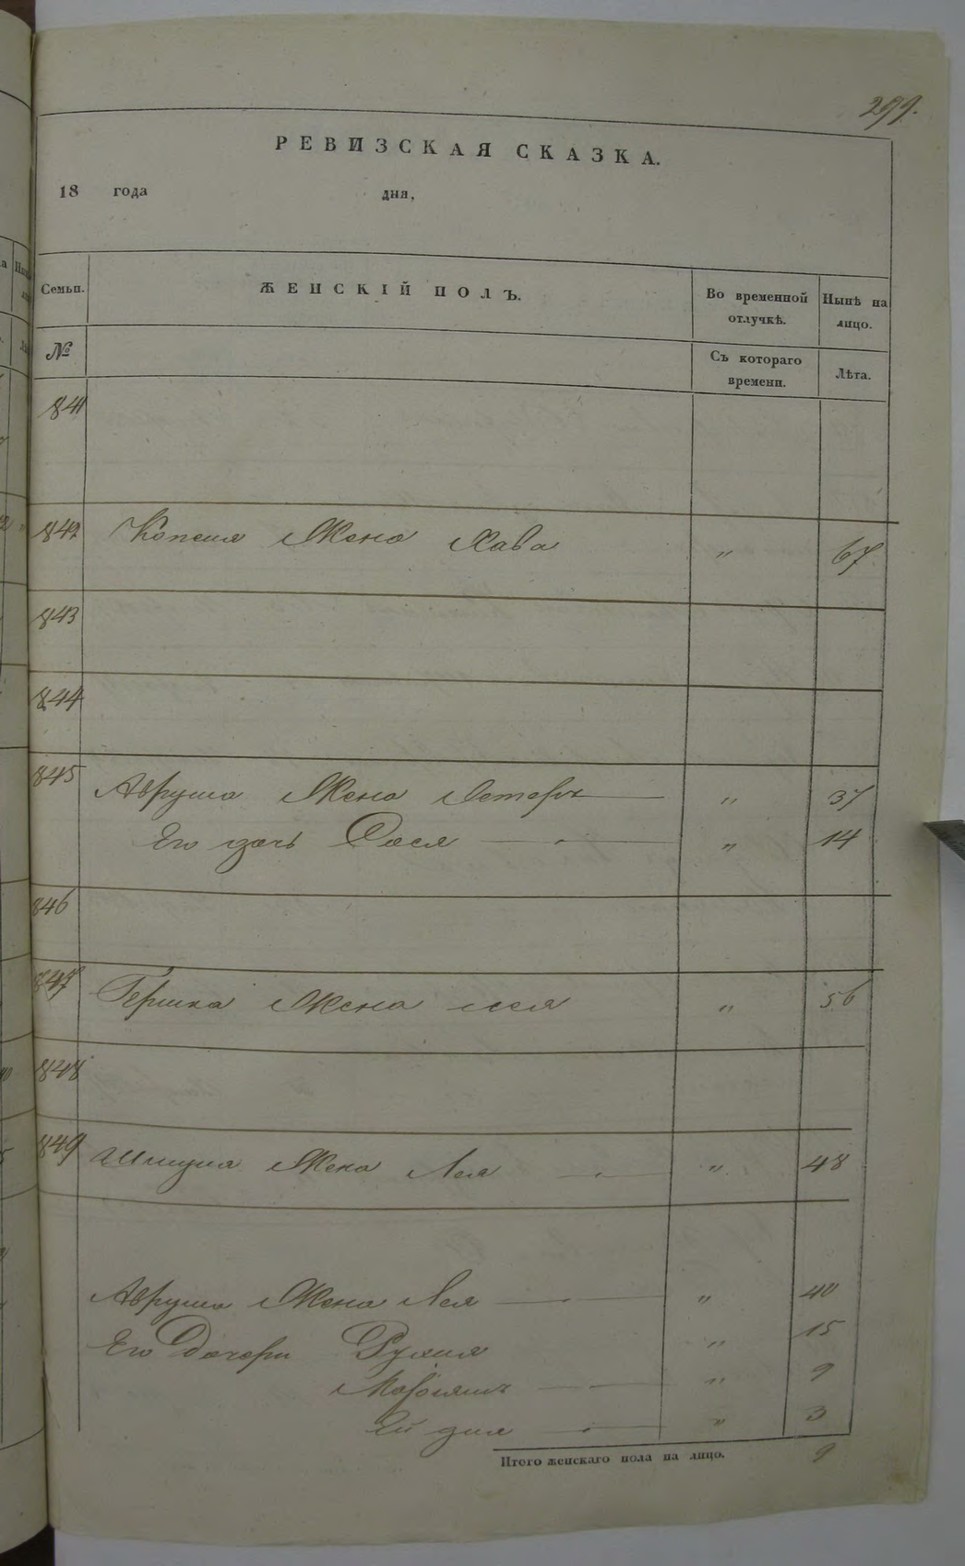 299.
РЕВИЗСКАЯ СКАЗКА.
18 года дня,
Семьи. ЖЕНСКІЙ ПОЛЪ. Во временной отлучкѣ. Нынѣ на лицо.
№ Съ котораго времени. Лѣта.
841
842 жена Хава " 67
843
844
845 Аврума жена Естеръ " 37
Его дочь Дося " 14
846
847 Гершка жена " 56
848
849 жена Лея " 48
Аврума жена Лея " 40
Его дочери Рухля " 15
" 9
" 3
Итого женскаго пола на лицо. 9